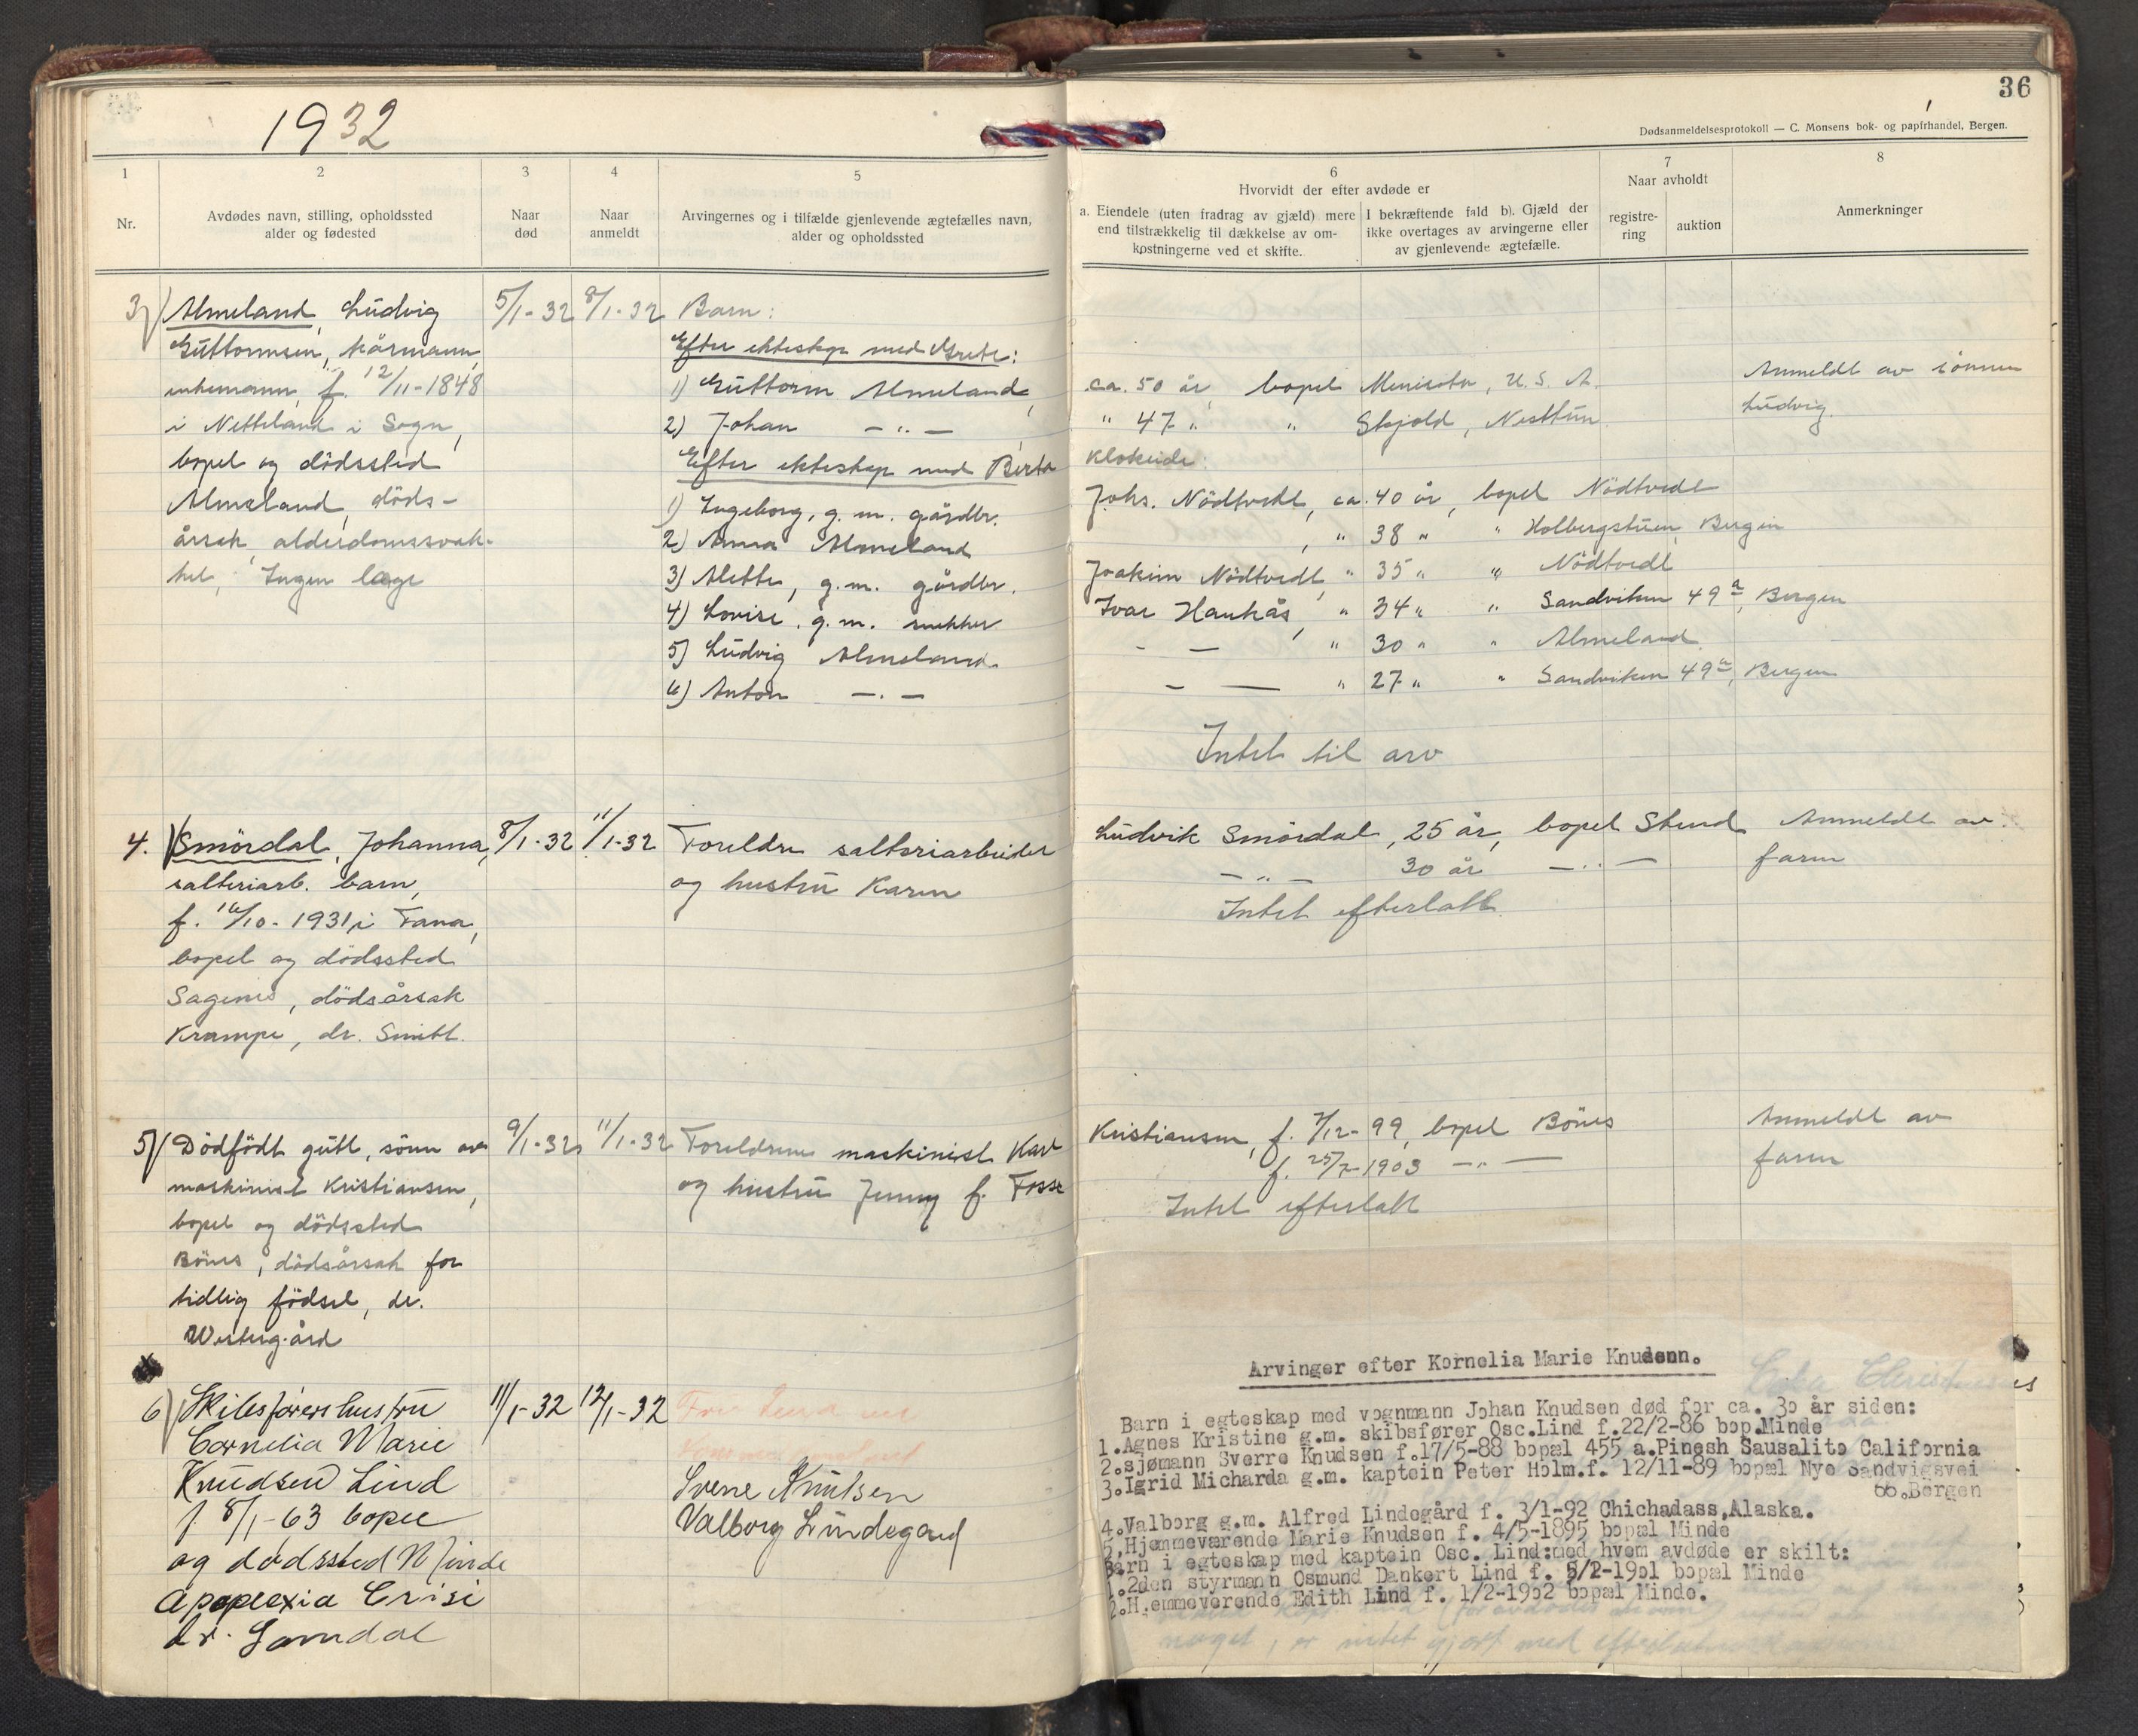 1932
36
Dødsanmeldelsesprotokoll — C. Monsens bok- og papirhandel, Bergen.
1
Nr.
2
Avdødes navn, stilling, opholdssted
alder og fødested
3
Naar
død
4
Naar
anmeldt
5
Arvingernes og i tilfælde gjenlevende ægtefælles navn,
alder og opholdssted
6
Hvorvidt der efter avdøde er
a. Eiendele (uten fradrag av gjæld) mere
end tilstrækkelig til dækkelse av om-
kostningerne ved et skifte.
I bekræftende fald b). Gjæld der
ikke overtages av arvingerne eller
av gjenlevende ægtefælle.
7
Naar avholdt
registre-
ring
auktion
8
Anmerkninger
3) Almeland, Ludvig
Guttormsen, kårmann,
enkemann, f. 12/11-1848
i Netteland i Sogn,
bopel og dödssted
Almeland, döds-
årsak alderdomssvak-
het, Ingen læge
5/1-32 8/1-32
Barn:
Efter ekteskap med Grete:
1) Guttorm Almeland, ca. 50 år, bopel Menisota, U.S.A.
2) Johan — " — " 47 " " Skjold, Nesttun
Efter ekteskap med Berta Klokeide:
1) Ingeborg, g. m. gårdbr. Johs. Nödtvedt, ca. 40 år, bopel Nödtvedt
2) Anna Almeland, " 38 " " Holbergstuen, Bergen
3) Alette, g.m. gårdbr. Joakim Nödtvedt, " 35 " " Nödtvedt
4) Lovise, g.m. snekker Ivar Haukås, " 34 " " Sandviken 49a, Bergen
5) Ludvig Almeland - — " 30 " " Almeland
6) Anton — . — - — " 27 " " Sandviken 49a, Bergen
Anmeldt av sönnen
Ludvig.
Intet til arv
4. Smördal, Johanna,
salteriarb. barn,
f. 16/10-1931 i Fana,
bopel og dödssted
Sagenes, dödsårsak
Krampe, dr. Smitt.
8/1-32 11/1-32
Foreldre salteriarbeider Ludvik Smördal, 25 år, bopel Stend
og hustru Karen — " — 30 år — " —
Intet efterlatt.
Anmeldt av
faren
5) Dödfödt gutt, sönn av
maskinist Kristiansen,
bopel og dödssted
Bönes, dödsårsak for
tidlig födsel, dr.
Westergård
9/1-32 11/1-32
Foreldrene maskinist Karl Kristiansen, f. 7/12-99, bopel Bönes
og hustru Jenny f. Fosse f. 25/7-1903 — " —
Intet efterlatt
Anmeldt av
faren
6) Skibsförershustru
Cornelia Marie
Knudsen Lind
f. 8/1-63 bopel
og dødssted Minde
Apoplexia Crisi
dr. Gamdal
11/1-32 12/1-32
Sverre Knutsen
Valborg Lindegard
Arvinger efter Kornelia Marie Knudsenn.
Barn i egteskap med vognmann Johan Knudsen død for ca. 30 år siden:
1.Agnes Kristine g.m. skibsfører Osc.Lind f.22/2-86 bop.Minde
2.sjømann Sverre Knudsen f.17/5-88 bopæl 455 a.Pinesh Sausalito California
3.Igrid Micharda g.m. kaptein Peter Holm.f. 12/11-89 bopæl Nye Sandvigsvei
66.Bergen
4.Valborg g.m. Alfred Lindegård f. 3/1-92 Chichadass,Alaska.
5.Hjemmeværende Marie Knudsen f. 4/5-1895 bopæl Minde
Barn i egteskap med kaptein Osc. Lind:med hvem avdøde er skilt:
1.2den styrmann Osmund Dankert Lind f. 5/2-1901 bopæl Minde
2.H.emmeverende Edith Lind f. 1/2-1902 bopæl Minde.
noget, er intet gjort med